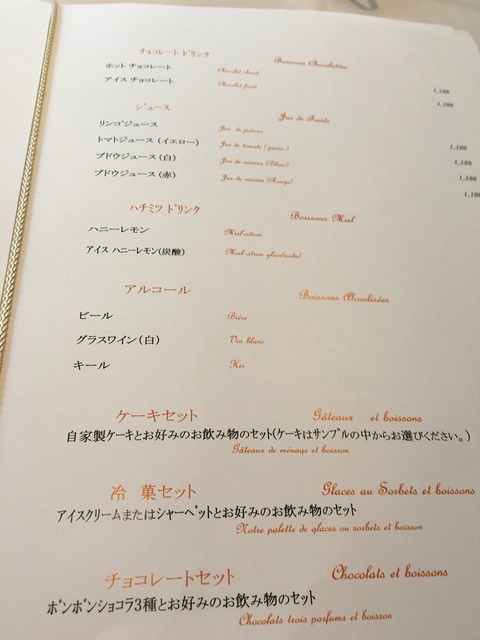 チョコレート ドリンク Boissons Chocolatées
ホット チョコレート Chocolat chaud
アイス チョコレート Chocolat froid 1,188
1,188
ジュース Jus de Fruits
リンゴジュース Jus de pomme
トマトジュース (イエロー) Jus de tomate (jaune) 1,188
ブドウジュース (白) Jus de raisins (Blanc) 1,188
ブドウジュース (赤) Jus de raisins (Rouge) 1,188
ハチミツ ドリンク Boissons Miel
ハニーレモン Miel-citron
アイス ハニーレモン(炭酸) Miel-citron
アルコール Boissons Alcoolisées
ビール Bière
グラスワイン (白) Vin blanc
キール Kir
ケーキセット Gâteaux et boissons
自家製ケーキとお好みのお飲み物のセット(ケーキはサンプルの中からお選びください。)
Gâteaux de ménage et boisson
冷 菓セット Glaces au Sorbets et boissons
アイスクリームまたはシャーベットとお好みのお飲み物のセット
Notre palette de glaces ou sorbets et boisson
チョコレートセット Chocolats et boissons
ボンボンショコラ3種とお好みのお飲み物のセット
Chocolats trois parfums et boisson